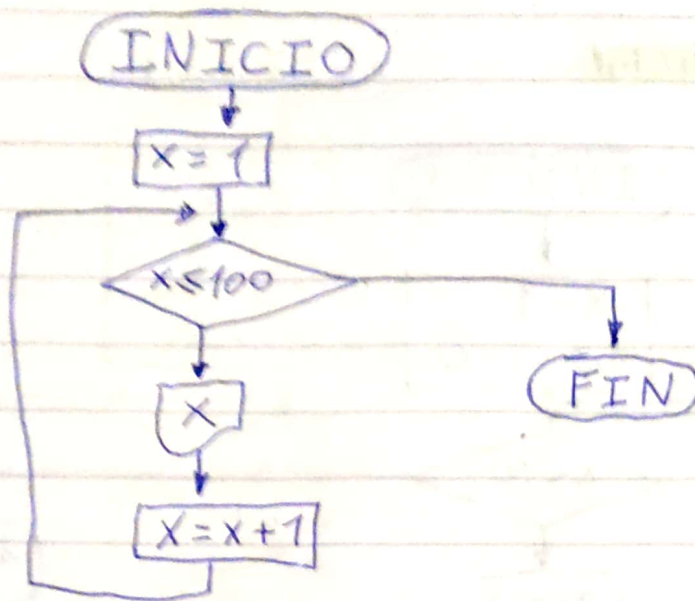 INICIO
x = 1
x ≤ 100
X
FIN
X = x + 1